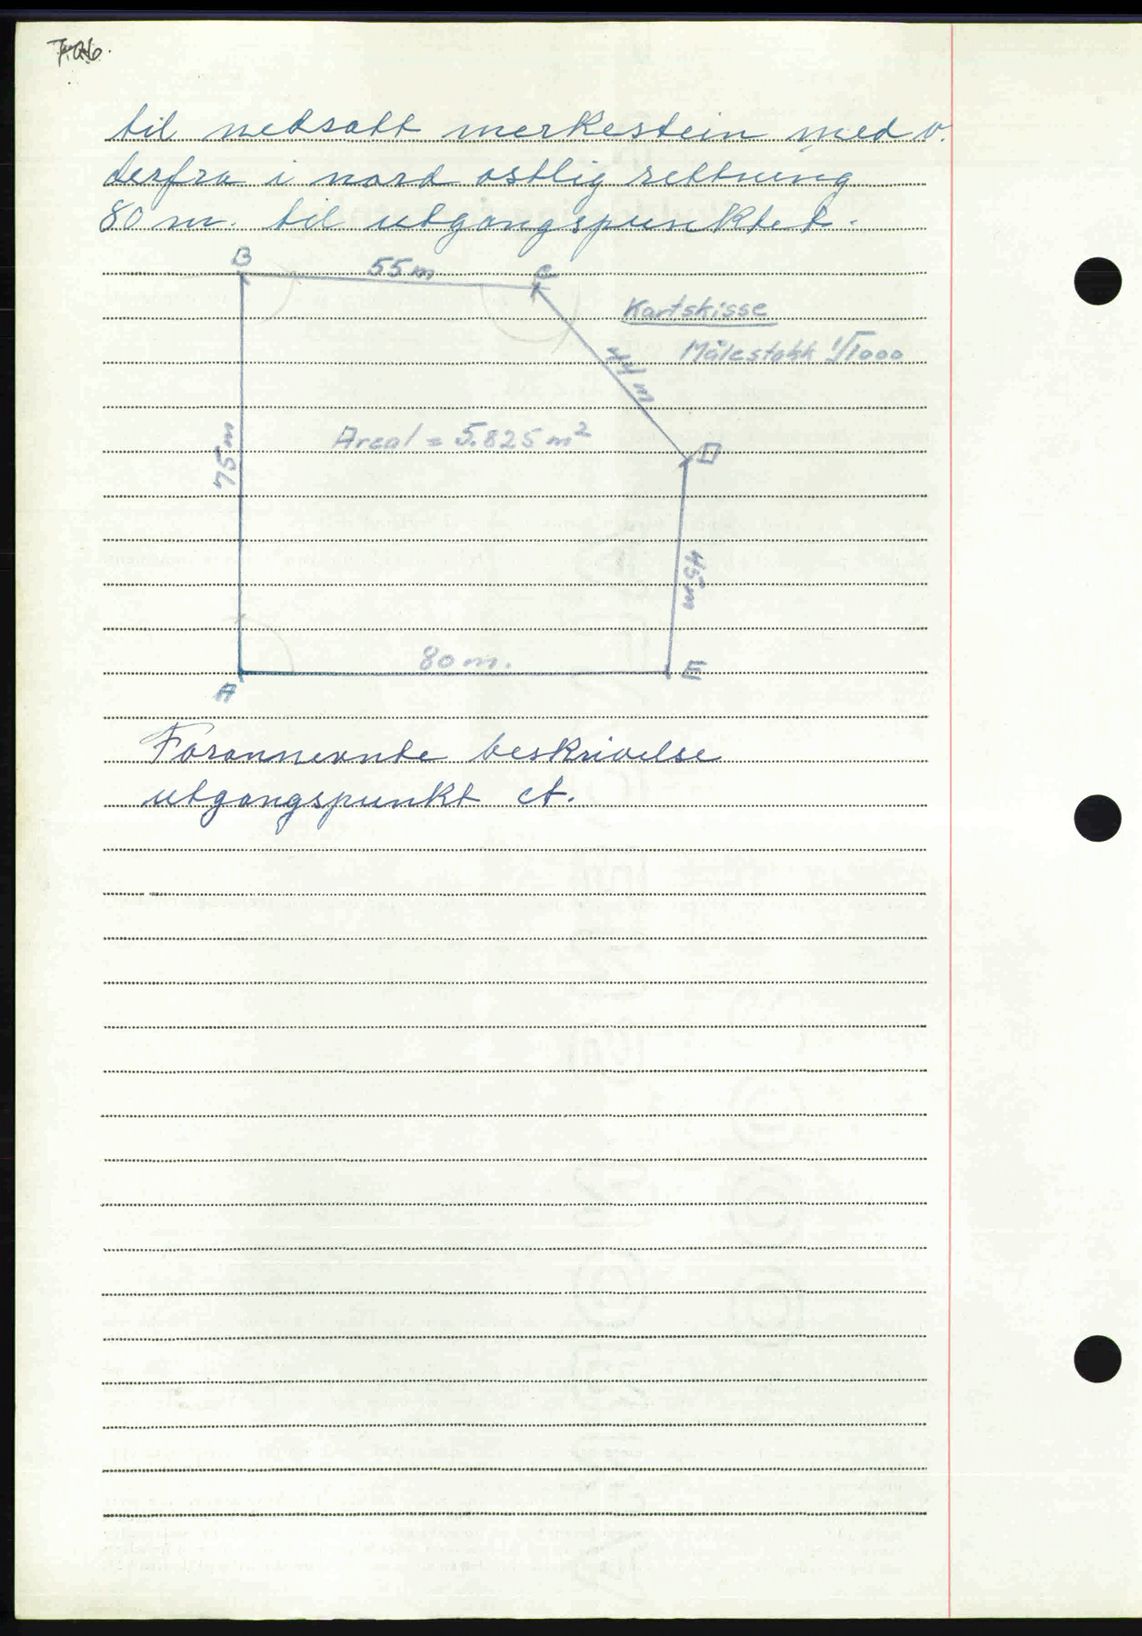 til nedsatt merkestein med v.
derfra i nord ostlig rettning
80 m. til utgangspunktet.
B
55 m
C
Kartskisse
Målestokk 1/1000
44 m
Areal = 5.825 m²
75 m
D
45 m
80 m.
E
A
Forannevnte beskrivelse
utgangspunkt ct.